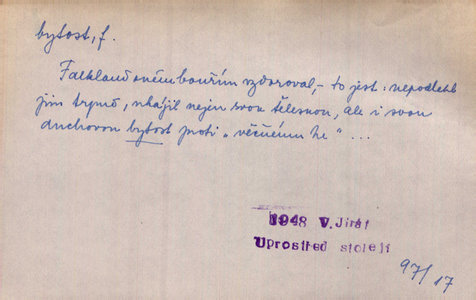 bytost, f.
Falkland oněm bouřím vzdoroval, - to jest: nepodlehl
jim trpně, uhájil nejen svou tělesnou, ale i svou
duchovou bytost proti „věčnému ne“ ...
1948 V. Jirát
Uprostřed století
97/17